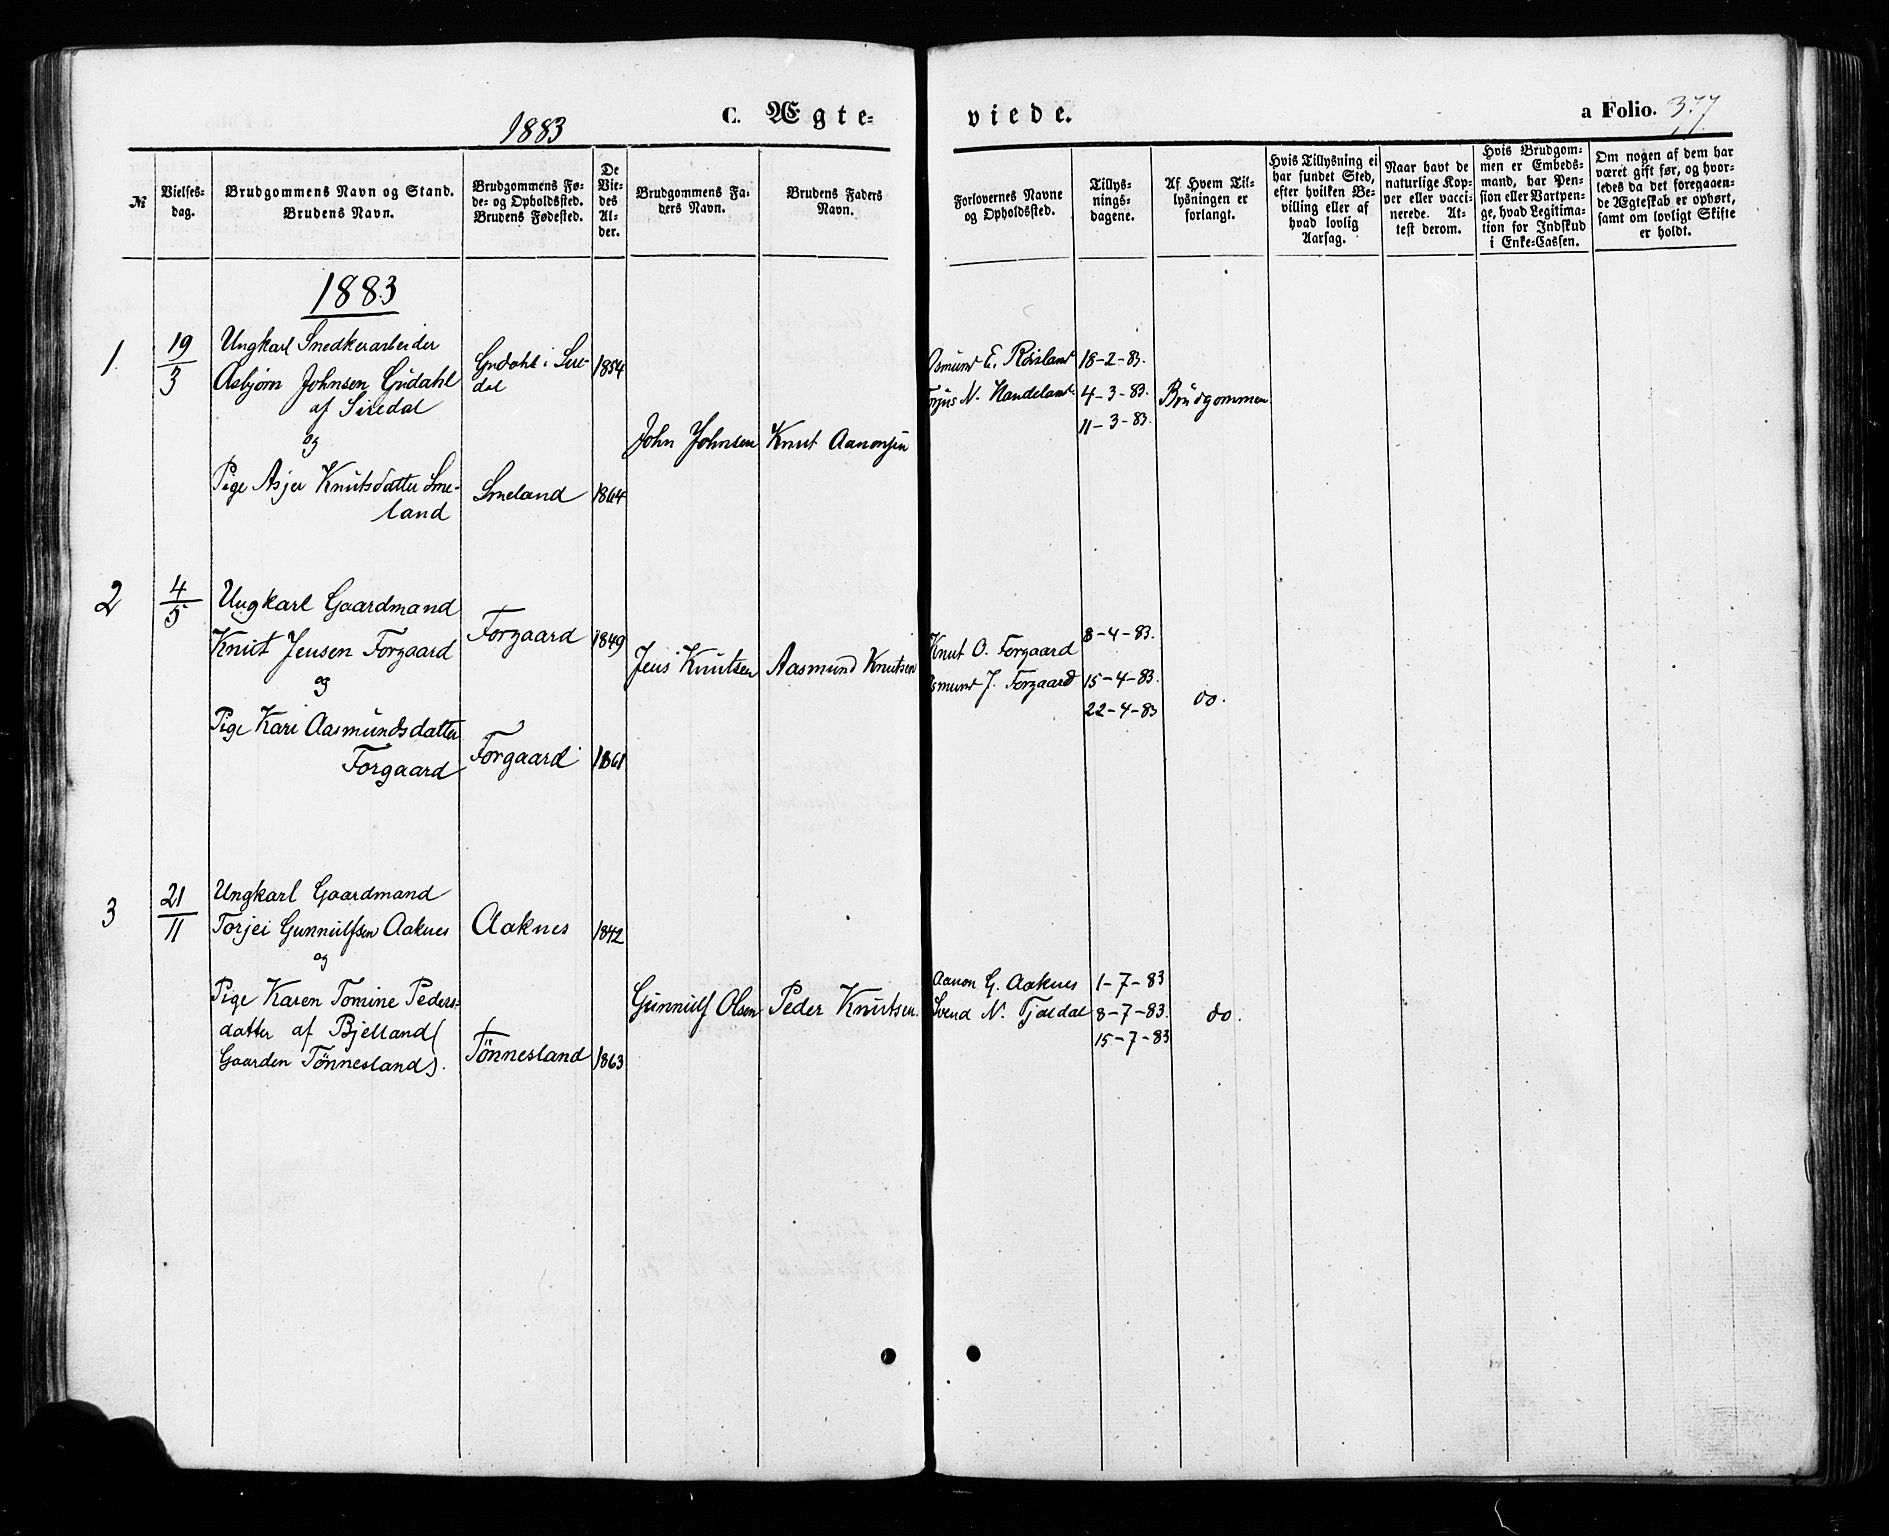 1883
C. Ægte-
viede.
a Folio. 377
№
Vielses-
dag.
Brudgommens Navn og Stand.
Brudens Navn.
Brudgommens Fø-
de- og Opholdssted.
Brudens Fødested.
De
Vie-
des
Al-
der.
Brudgommens Fa-
ders Navn.
Brudens Faders
Navn.
Forlovernes Navne
og Opholdssted.
Tillys-
nings-
dagene.
Af Hvem Til-
lysningen er
forlangt.
Hvis Tillysning ei
har fundet Sted,
efter hvilken Be-
villing eller af
hvad lovlig
Aarsag.
Naar havt de
naturlige Kop-
per eller vacci-
nerede. At-
test derom.
Hvis Brudgom-
men er Embeds-
mand, har Pen-
sion eller Vartpen-
ge, hvad Legitima-
tion for Indskud
i Enke-Cassen.
Om nogen af dem har
været gift før, og hvor-
ledes da det foregaaen-
de Ægteskab er ophørt,
samt om lovligt Skifte
er holdt.
1883
1.
19/3
Ungkarl Snedkerarbeider
Asbjørn Johnsen Gudahl
af Siredal
og
Pige Asjer Knutsdatter Sme-
land
Gudahl i Sire-
dal
Smeland
1854
1864
John Johnsen
Knut Aanonsen
Osmund E. Røisland
Torjus N. Handeland
18-2-83.
4-3-83.
11-3-83.
Brudgommen
2
4/5
Ungkarl Gaardmand
Knut Jensen Forgaard
og
Pige Kari Aasmundsdatter
Forgaard
Forgaard
Forgaard
1849
1861
Jens Knutsen
Aasmund Knutsen
Knut O. Forgaard
Osmund J. Forgaard
8-4-83.
15-4-83.
22-4-83
do.
3
21/11
Ungkarl Gaardmand
Torjei Gunnulfsen Aaknes
og
Pige Karen Tomine Peders-
datter af Bjelland (
Gaarden Tönnesland).
Aaknes
Tönnesland
1842
1863
Gunnulf Olsen
Peder Knutsen.
Aanon G. Aaknes
Svend N. Tjaldal
1-7-83
8-7-83.
15-7-83
do.